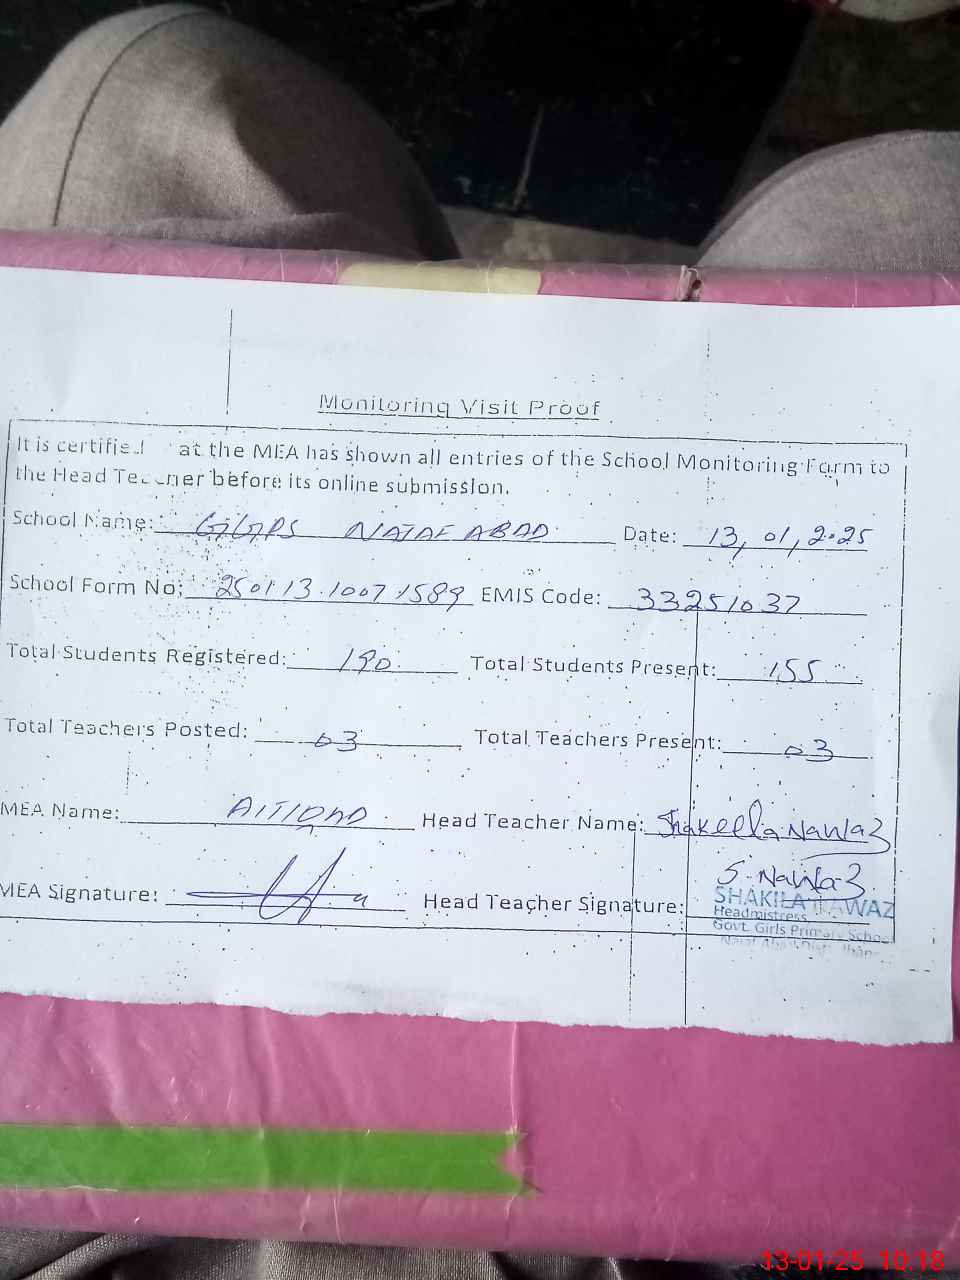 Monitoring Visit Proof
It is certified at the MEA has shown all entries of the School Monitoring Farm to
the Head Teacher before its online submission.
School Name: GGPS NAJAF ABAD Date: 13, 01, 2025
School Form No: 250113.1007.1589 EMIS Code: 33251037
Total Students Registered: 190 Total Students Present: 155
Total Teachers Posted: 03 Total Teachers Present: 03
MEA Name: Head Teacher Name: Shakeela Nawaz
S. Nawaz
MEA Signature: Head Teacher Signature:
SHAKILA NAWAZ
Headmistress
Govt. Girls Primary School
Najaf Abad Distt. Jhang
13-01-25 10:18